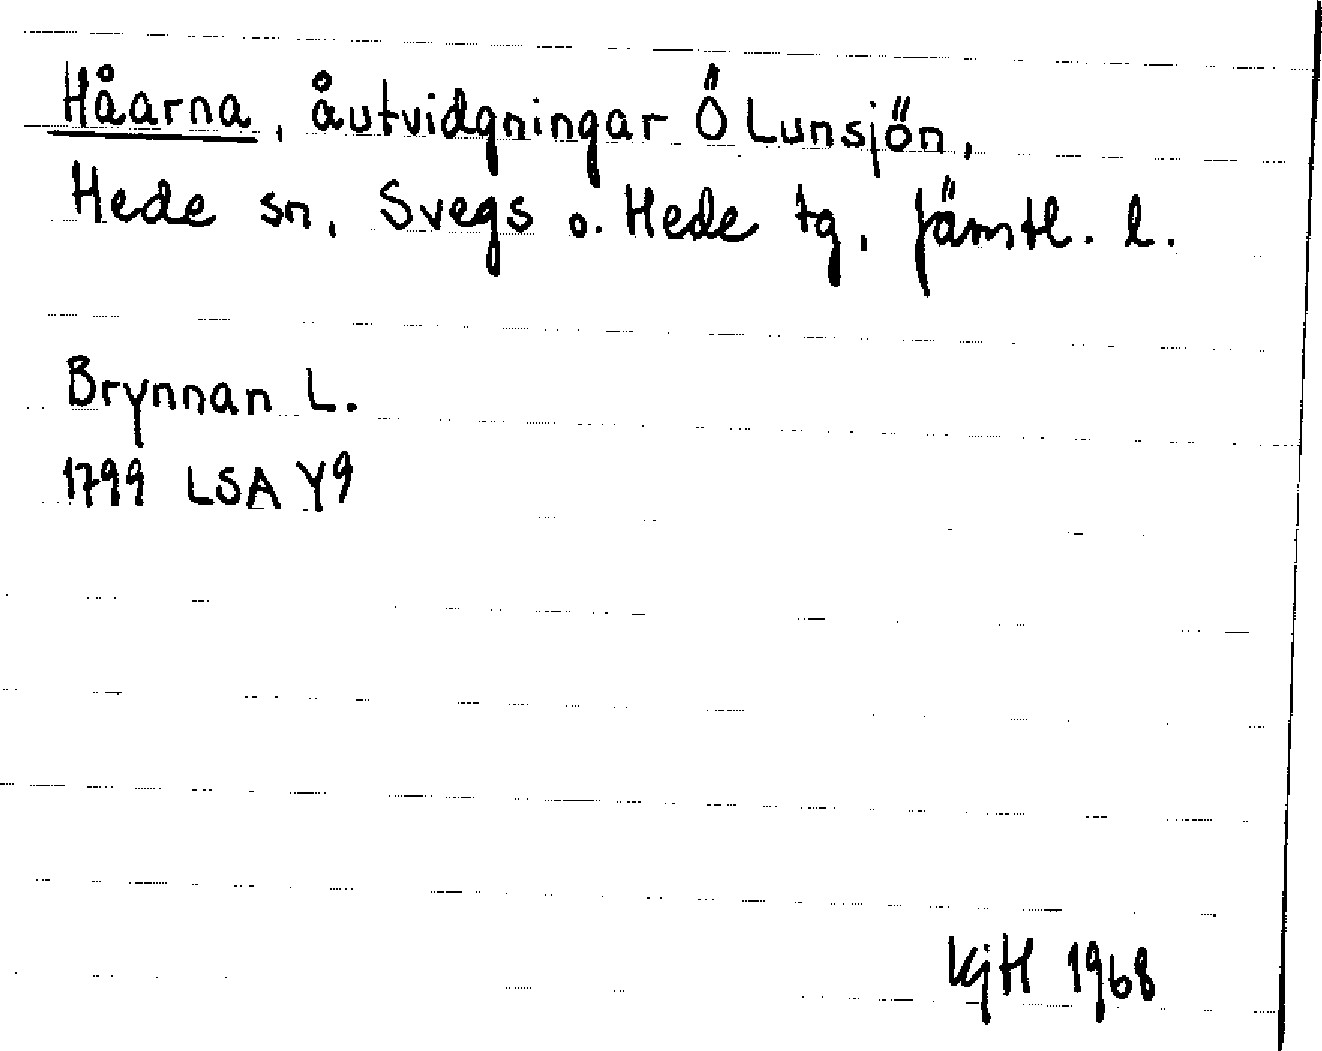 Håarna, åutvidgningar Ö Lunsjön,
Hede sn, Svegs o. Hede tg, Jämtl. l.
Brynnan L.
1799 LSA Y9
KjH 1968